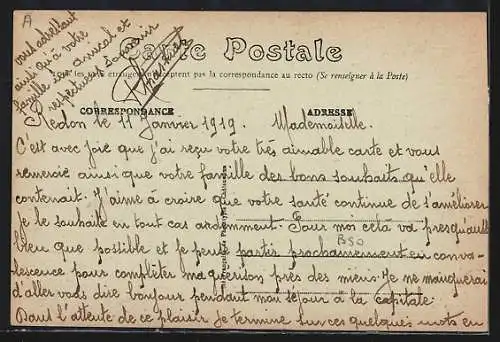 A
vous adressant
ainsi qu'à votre
famille son amical et
respectueux souvenir
Carte Postale
Tous les pays étrangers n'acceptent pas la correspondance au recto (Se renseigner à la Poste)
CORRESPONDANCE
ADRESSE
Redon le 11 Janvier 1919. Mademoiselle.
C'est avec joie que j'ai reçu votre très aimable carte et vous
remercie ainsi que votre famille des bons souhaits qu'elle
contenait. J'aime à croire que votre santé continue de s'améliorer
je le souhaite en tout cas ardemment. Pour moi cela va presqu'aussi
bien que possible et je pense partir prochainement en conva-
BSO
lescence pour compléter ma guérison près des miens. Je ne manquerai
d'aller vous dire bonjour pendant mon séjour à la capitale.
Dans l'attente de ce plaisir je termine sur ces quelques mots en